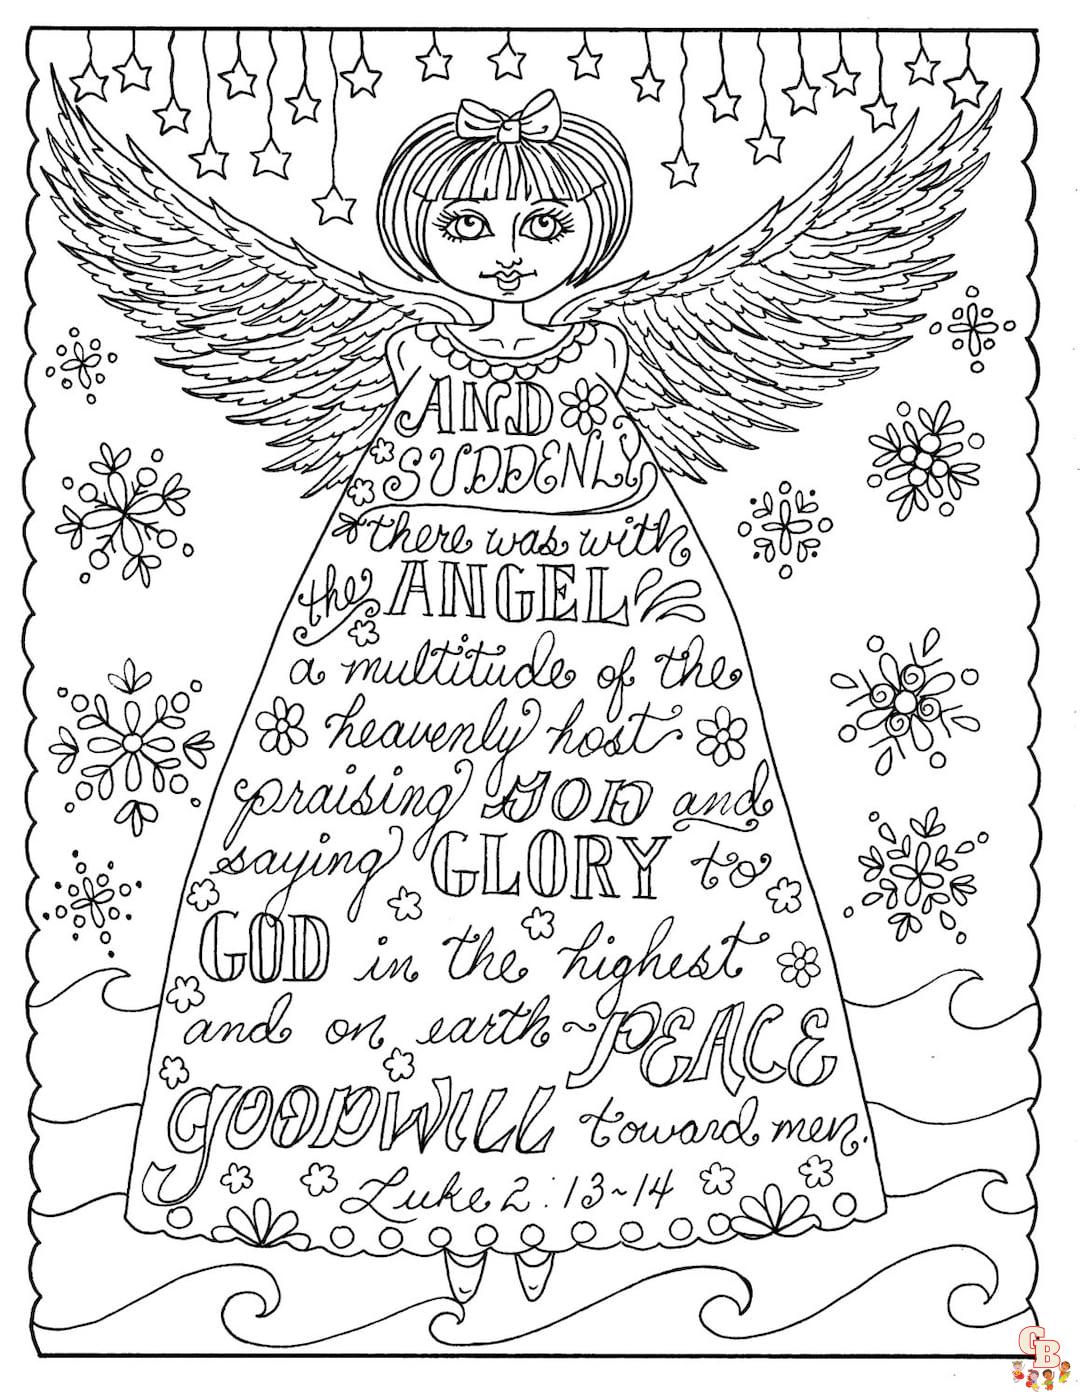 AND
SUDDENLY
there was with
the ANGEL
a multitude of the
heavenly host
praising GOD and
saying GLORY to
GOD in the highest
and on earth ~ PEACE
GOODWILL toward men.
Luke 2:13~14
GB